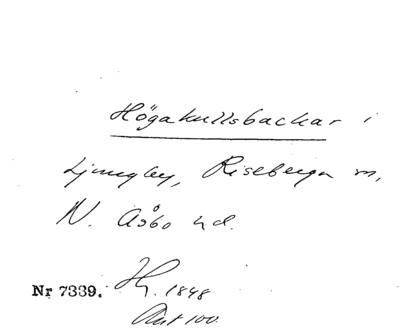 Högakullsbackar i
Ljungby, Riseberga sn,
N. Åsbo hd.
Nr 7339. Hg. 1848
Ant 100.